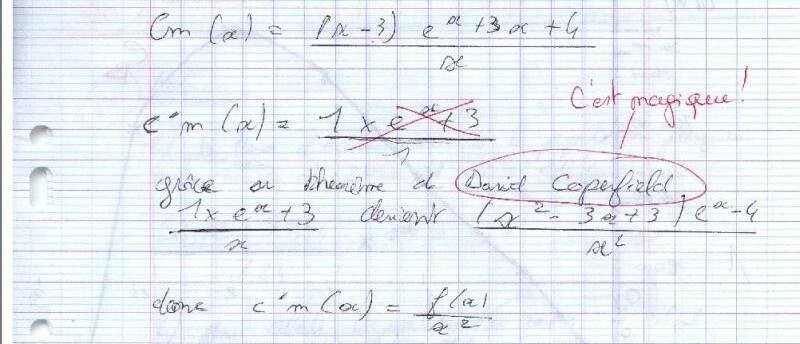 Cm (x) = ((x - 3) e^x + 3x + 4) / x
C'est magique !
c'm (x) = (1 x e^x + 3) / 1
grâce au théorème d David Coperfield
(1 x e^x + 3) / x devient ((x² - 3x + 3) e^x - 4) / x²
donc c'm (x) = f(x) / x²